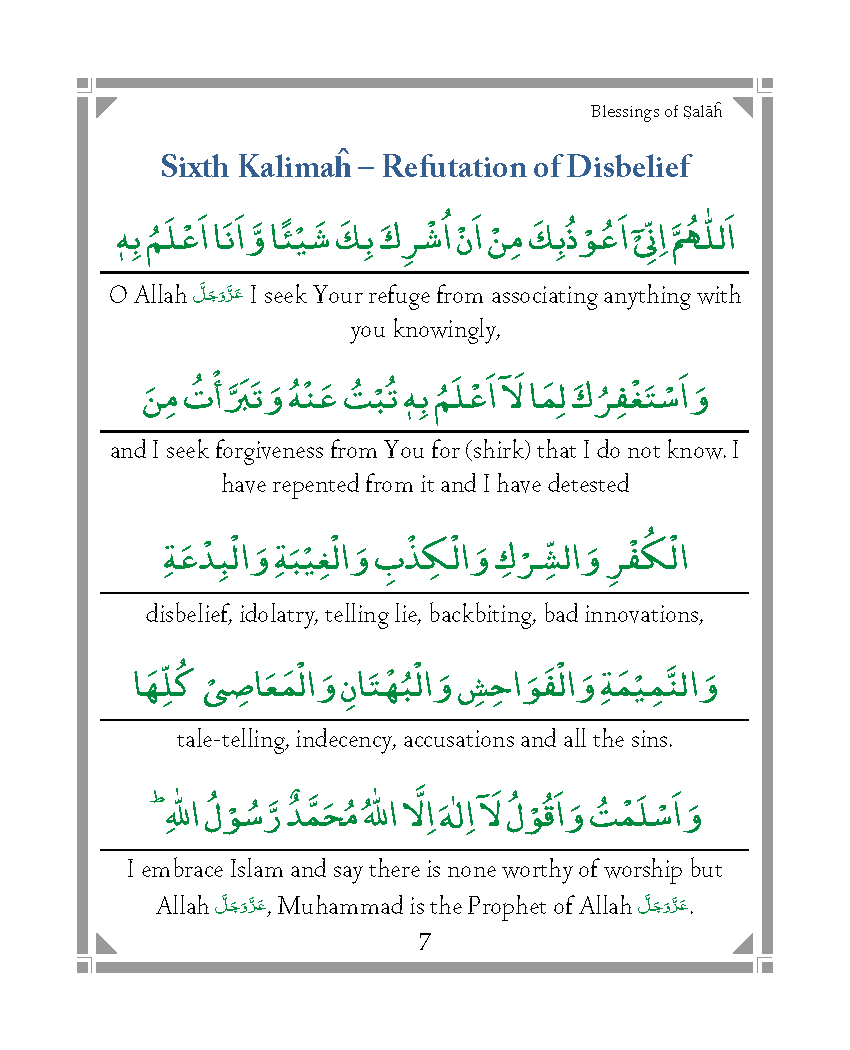 Blessings of Ṣalāĥ
Sixth Kalimaĥ – Refutation of Disbelief
اَللّٰهُمَّ اِنِّیْۤ اَعُوْذُ بِكَ مِنْ اَنْ اُشْرِكَ بِكَ شَیْـًٔا وَّ اَنَا اَعْلَمُ بِهٖ
O Allah عَزَّوَجَلَّ I seek Your refuge from associating anything with
you knowingly,
وَ اَسْتَغْفِرُكَ لِمَا لَاۤ اَعْلَمُ بِهٖ تُبْتُ عَنْهُ وَ تَبَرَّأْتُ مِنَ
and I seek forgiveness from You for (shirk) that I do not know. I
have repented from it and I have detested
الْكُفْرِ وَ الشِّرْكِ وَ الْكِذْبِ وَ الْغِیْبَةِ وَ الْبِدْعَةِ
disbelief, idolatry, telling lie, backbiting, bad innovations,
وَ النَّمِیْمَةِ وَ الْفَوَاحِشِ وَ الْبُهْتَانِ وَ الْمَعَاصِیْ كُلِّهَا
tale-telling, indecency, accusations and all the sins.
وَ اَسْلَمْتُ وَ اَقُوْلُ لَاۤ اِلٰهَ اِلَّا اللّٰهُ مُحَمَّدٌ رَّسُوْلُ اللّٰهِ ؕ
I embrace Islam and say there is none worthy of worship but
Allah عَزَّوَجَلَّ, Muhammad is the Prophet of Allah عَزَّوَجَلَّ.
7